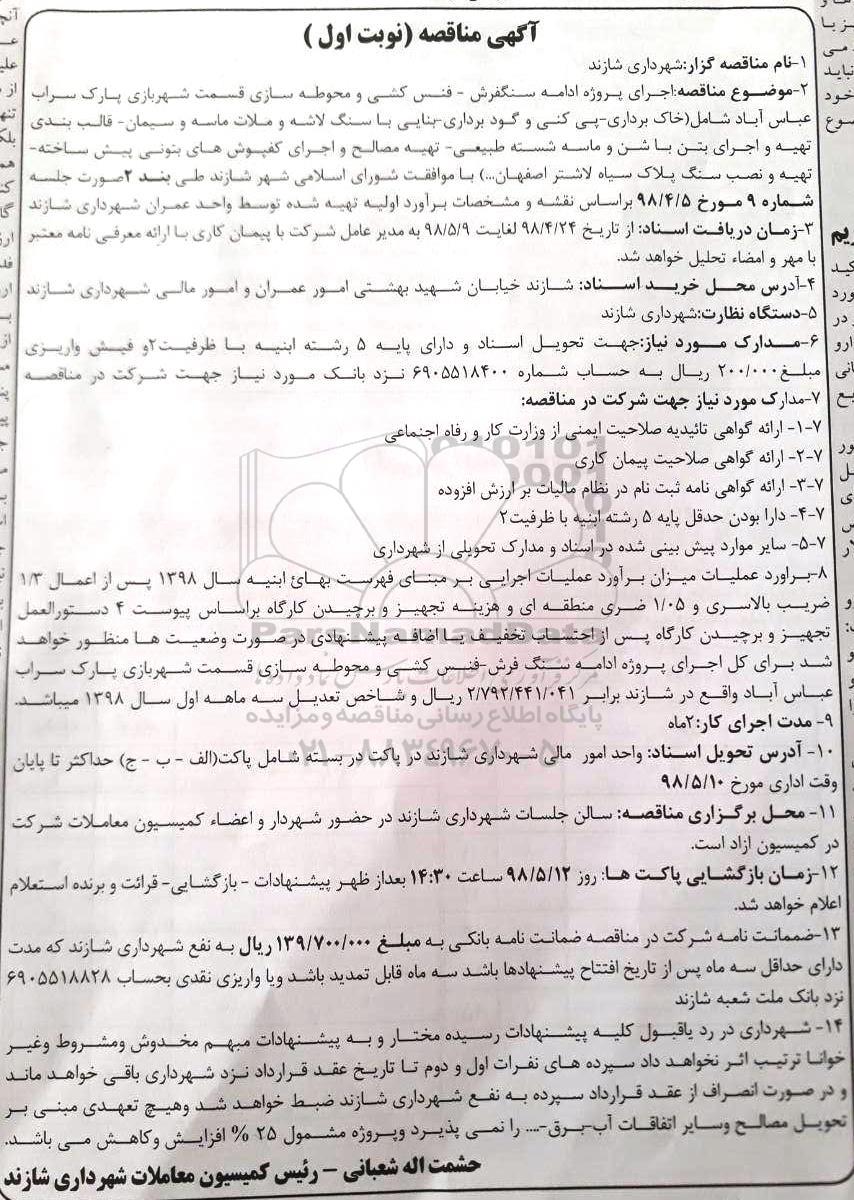 آگهی مناقصه (نوبت اول )
۱-نام مناقصه گزار:شهرداری شازند
۲-موضوع مناقصه:اجرای پروژه ادامه سنگفرش - فنس کشی و محوطه سازی قسمت شهربازی پارک سراب
عباس آباد شامل(خاک برداری-پی کنی و گود برداری-بنایی با سنگ لاشه و ملات ماسه و سیمان- قالب بندی
تهیه و اجرای بتن با شن و ماسه شسته طبیعی- تهیه مصالح و اجرای کفپوش های بتونی پیش ساخته-
تهیه و نصب سنگ پلاک سیاه لاشتر اصفهان...) با موافقت شورای اسلامی شهر شازند طی بند ۲صورت جلسه
شماره ۹ مورخ ۹۸/۴/۵ براساس نقشه و مشخصات برآورد اولیه تهیه شده توسط واحد عمران شهرداری شازند
۳-زمان دریافت اسناد: از تاریخ ۹۸/۴/۲۴ لغایت ۹۸/۵/۹ به مدیر عامل شرکت با پیمان کاری با ارائه معرفی نامه معتبر
با مهر و امضاء تحلیل خواهد شد.
۴-آدرس محل خرید اسناد: شازند خیابان شهید بهشتی امور عمران و امور مالی شهرداری شازند
۵-دستگاه نظارت:شهرداری شازند
۶-مدارک مورد نیاز:جهت تحویل اسناد و دارای پایه ۵ رشته ابنیه با ظرفیت۲و فیش واریزی
مبلغ۲۰۰/۰۰۰ ریال به حساب شماره ۶۹۰۵۵۱۸۴۰۰ نزد بانک مورد نیاز جهت شرکت در مناقصه
۷-مدارک مورد نیاز جهت شرکت در مناقصه:
۷-۱- ارائه گواهی تائیدیه صلاحیت ایمنی از وزارت کار و رفاه اجتماعی
۷-۲- ارائه گواهی صلاحیت پیمان کاری
۷-۳- ارائه گواهی نامه ثبت نام در نظام مالیات بر ارزش افزوده
۷-۴- دارا بودن حدقل پایه ۵ رشته ابنیه با ظرفیت۲
۷-۵- سایر موارد پیش بینی شده در اسناد و مدارک تحویلی از شهرداری
۸-براورد عملیات میزان برآورد عملیات اجرایی بر مبنای فهرست بهائ ابنیه سال ۱۳۹۸ پس از اعمال ۱/۳
ضریب بالاسری و ۱/۰۵ ضری منطقه ای و هزینه تجهیز و برچیدن کارگاه براساس پیوست ۴ دستورالعمل
تجهیز و برچیدن کارگاه پس از احتساب تخفیف یا اضافه پیشنهادی در صورت وضعیت ها منظور خواهد
شد برای کل اجرای پروژه ادامه سنگ فرش-فنس کشی و محوطه سازی قسمت شهربازی پارک سراب
عباس آباد واقع در شازند برابر ۲/۷۹۲/۴۴۱/۰۴۱ ریال و شاخص تعدیل سه ماهه اول سال ۱۳۹۸ میباشد.
۹- مدت اجرای کار:۲ماه
۱۰- آدرس تحویل اسناد: واحد امور مالی شهرداری شازند در پاکت در بسته شامل پاکت(الف - ب - ج) حداکثر تا پایان
وقت اداری مورخ ۹۸/۵/۱۰
۱۱- محل برگزاری مناقصه: سالن جلسات شهرداری شازند در حضور شهردار و اعضاء کمیسیون معاملات شرکت
در کمیسیون ازاد است.
۱۲-زمان بازگشایی پاکت ها: روز ۹۸/۵/۱۲ ساعت ۱۴:۳۰ بعداز ظهر پیشنهادات - بازگشایی- قرائت و برنده استعلام
اعلام خواهد شد.
۱۳-ضممانت نامه شرکت در مناقصه ضمانت نامه بانکی به مبلغ ۱۳۹/۷۰۰/۰۰۰ ریال به نفع شهرداری شازند که مدت
دارای حداقل سه ماه پس از تاریخ افتتاح پیشنهادها باشد سه ماه قابل تمدید باشد ویا واریزی نقدی بحساب ۶۹۰۵۵۱۸۸۲۸
نزد بانک ملت شعبه شازند
۱۴- شهرداری در رد یاقبول کلیه پیشنهادات رسیده مختار و به پیشنهادات مبهم مخدوش ومشروط وغیر
خوانا ترتیب اثر نخواهد داد سپرده های نفرات اول و دوم تا تاریخ عقد قرارداد نزد شهرداری باقی خواهد ماند
و در صورت انصراف از عقد قرارداد سپرده به نفع شهرداری شازند ضبط خواهد شد وهیچ تعهدی مبنی بر
تحویل مصالح وسایر اتفاقات آب-برق-.... را نمی پذیرد وپروژه مشمول ۲۵ % افزایش وکاهش می باشد.
حشمت اله شعبانی - رئیس کمیسیون معاملات شهرداری شازند
ParsNamadData
پایگاه اطلاع رسانی مناقصه و مزایده